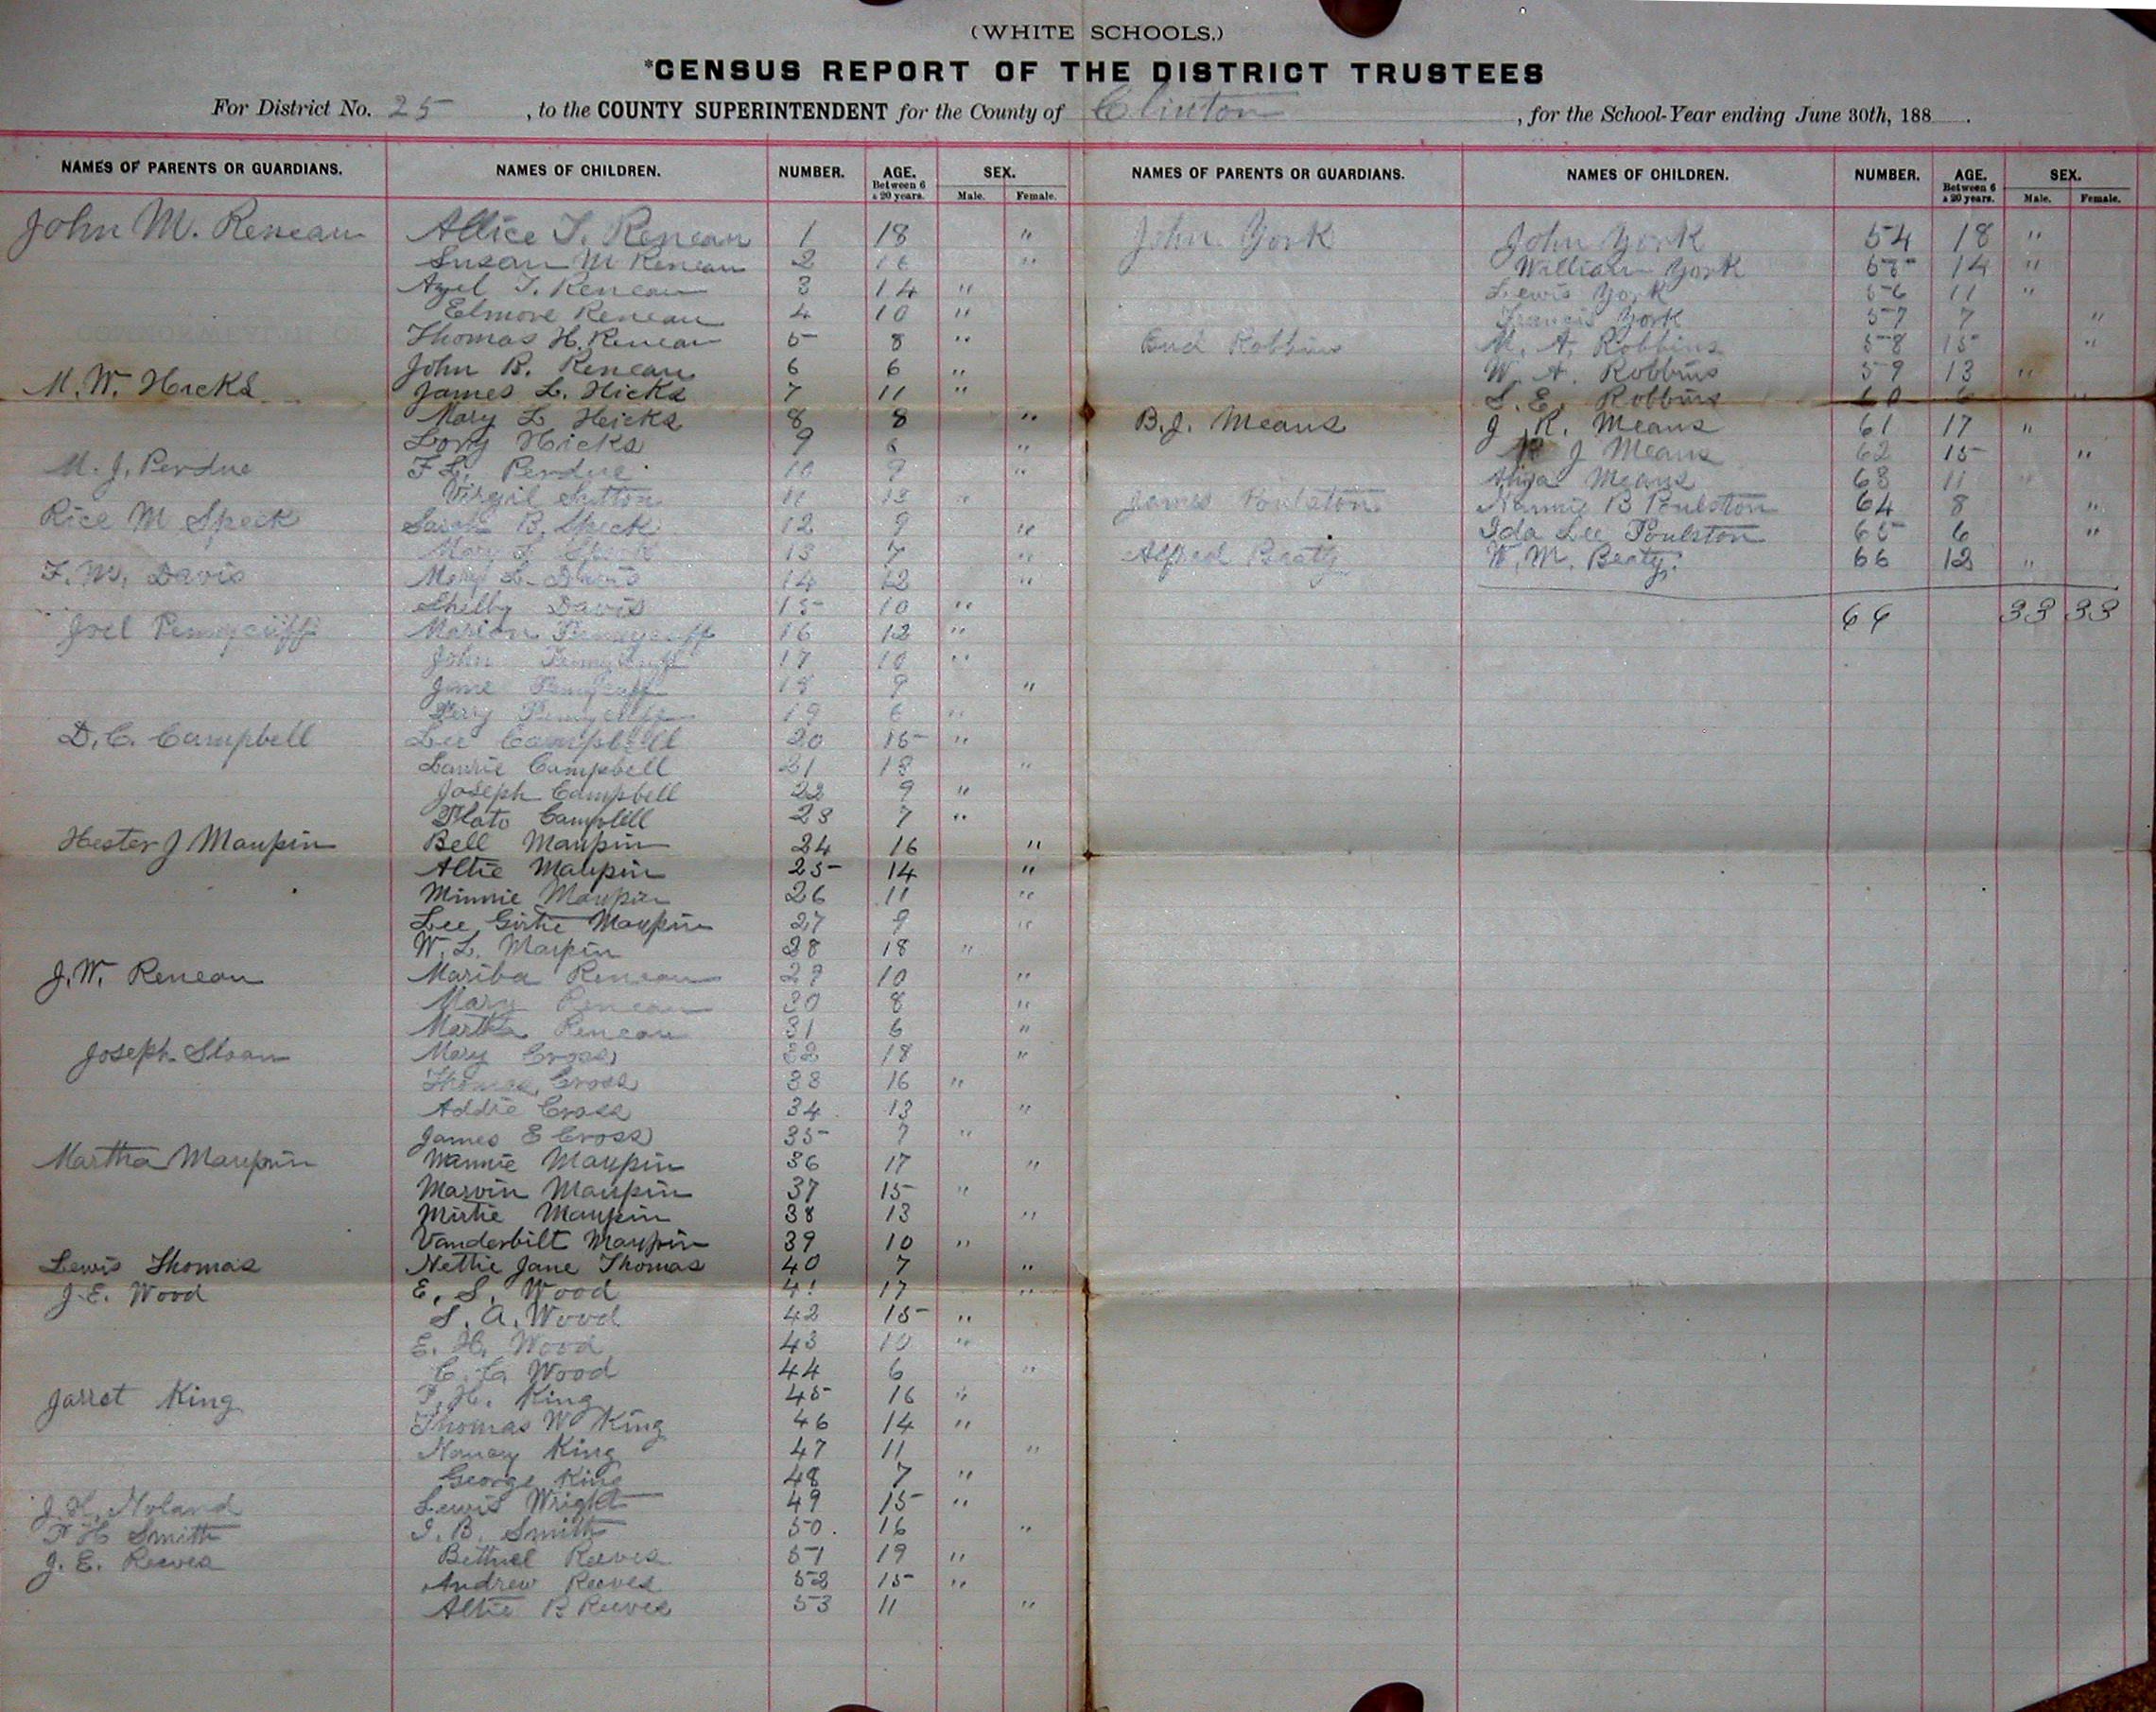 (WHITE SCHOOLS.)
*CENSUS REPORT OF THE DISTRICT TRUSTEES
For District No. 25, to the COUNTY SUPERINTENDENT for the County of Clinton, for the School-Year ending June 30th, 188
NAMES OF PARENTS OR GUARDIANS. NAMES OF CHILDREN. NUMBER. AGE. Between 6 & 20 years. SEX. Male. Female.
John M. Reneau Allice T. Reneau 1 18 "
Susan M Reneau 2 16 "
Azel T. Reneau 3 14 "
Elmore Reneau 4 10 "
Thomas H. Reneau 5 8 "
John B. Reneau 6 6 "
M. W. Hicks James L. Hicks 7 11 "
Mary L Hicks 8 8 "
Hicks 9 6 "
M. J. Perdue F L. Perdue 10 9 "
Virgil Sutton 11 13 "
Rice M Speck Sarah B. Speck 12 9 "
Mary Speck 13 7 "
F. M. Davis Mary L. Davis 14 12 "
Shelby Davis 15 10 "
Joel Pennycuff Marion Pennycuff 16 12 "
John Pennycuff 17 10 "
Jane Pennycuff 18 9 "
Perry Pennycuff 19 6 "
D. C. Campbell Lee Campbell 20 15 "
Laurie Campbell 21 13 "
Joseph Campbell 22 9 "
Plato Campbell 23 7 "
Hester J Maupin Bell Maupin 24 16 "
Altie Maupin 25 14 "
Minnie Maupin 26 11 "
Lee Girtie Maupin 27 9 "
W. L. Maupin 28 18 "
J. W. Reneau Mariba Reneau 29 10 "
Mary Reneau 30 8 "
Martha Reneau 31 6 "
Joseph Sloan Mary Cross 32 18 "
Thomas Cross 33 16 "
Addie Cross 34 13 "
James E Cross 35 7 "
Martha Maupin Mannie Maupin 36 17 "
Marvin Maupin 37 15 "
Mirtie Maupin 38 13 "
Vanderbilt Maupin 39 10 "
Lewis Thomas Nettie Jane Thomas 40 7 "
J. E. Wood E. S. Wood 41 17 "
S. A. Wood 42 15 "
E. H. Wood 43 10 "
C. C. Wood 44 6 "
Jarret King P. H. King 45 16 "
Thomas W King 46 14 "
Nancy King 47 11 "
George King 48 7 "
J. H. Noland Lewis Wright 49 15 "
P H Smith I. B. Smith 50. 16 "
J. E. Reeves Bethuel Reeves 51 19 "
Andrew Reeves 52 15 "
Altie B Reeves 53 11 "
NAMES OF PARENTS OR GUARDIANS. NAMES OF CHILDREN. NUMBER. AGE. Between 6 & 20 years. SEX. Male. Female.
John York John York 54 18 "
William York 55 14 "
Lewis York 56 11 "
Francis York 57 7 "
Robbins M. A. Robbins 58 15 "
W. A. Robbins 59 13 "
S. E. Robbins 60 6 "
B. J. Means J. R. Means 61 17 "
R J Means 62 15 "
Means 63 11 "
James Poulston Nannie B Poulston 64 8 "
Ida Lee Poulston 65 6 "
Alfred Beaty W. M. Beaty. 66 12 "
66 33 33